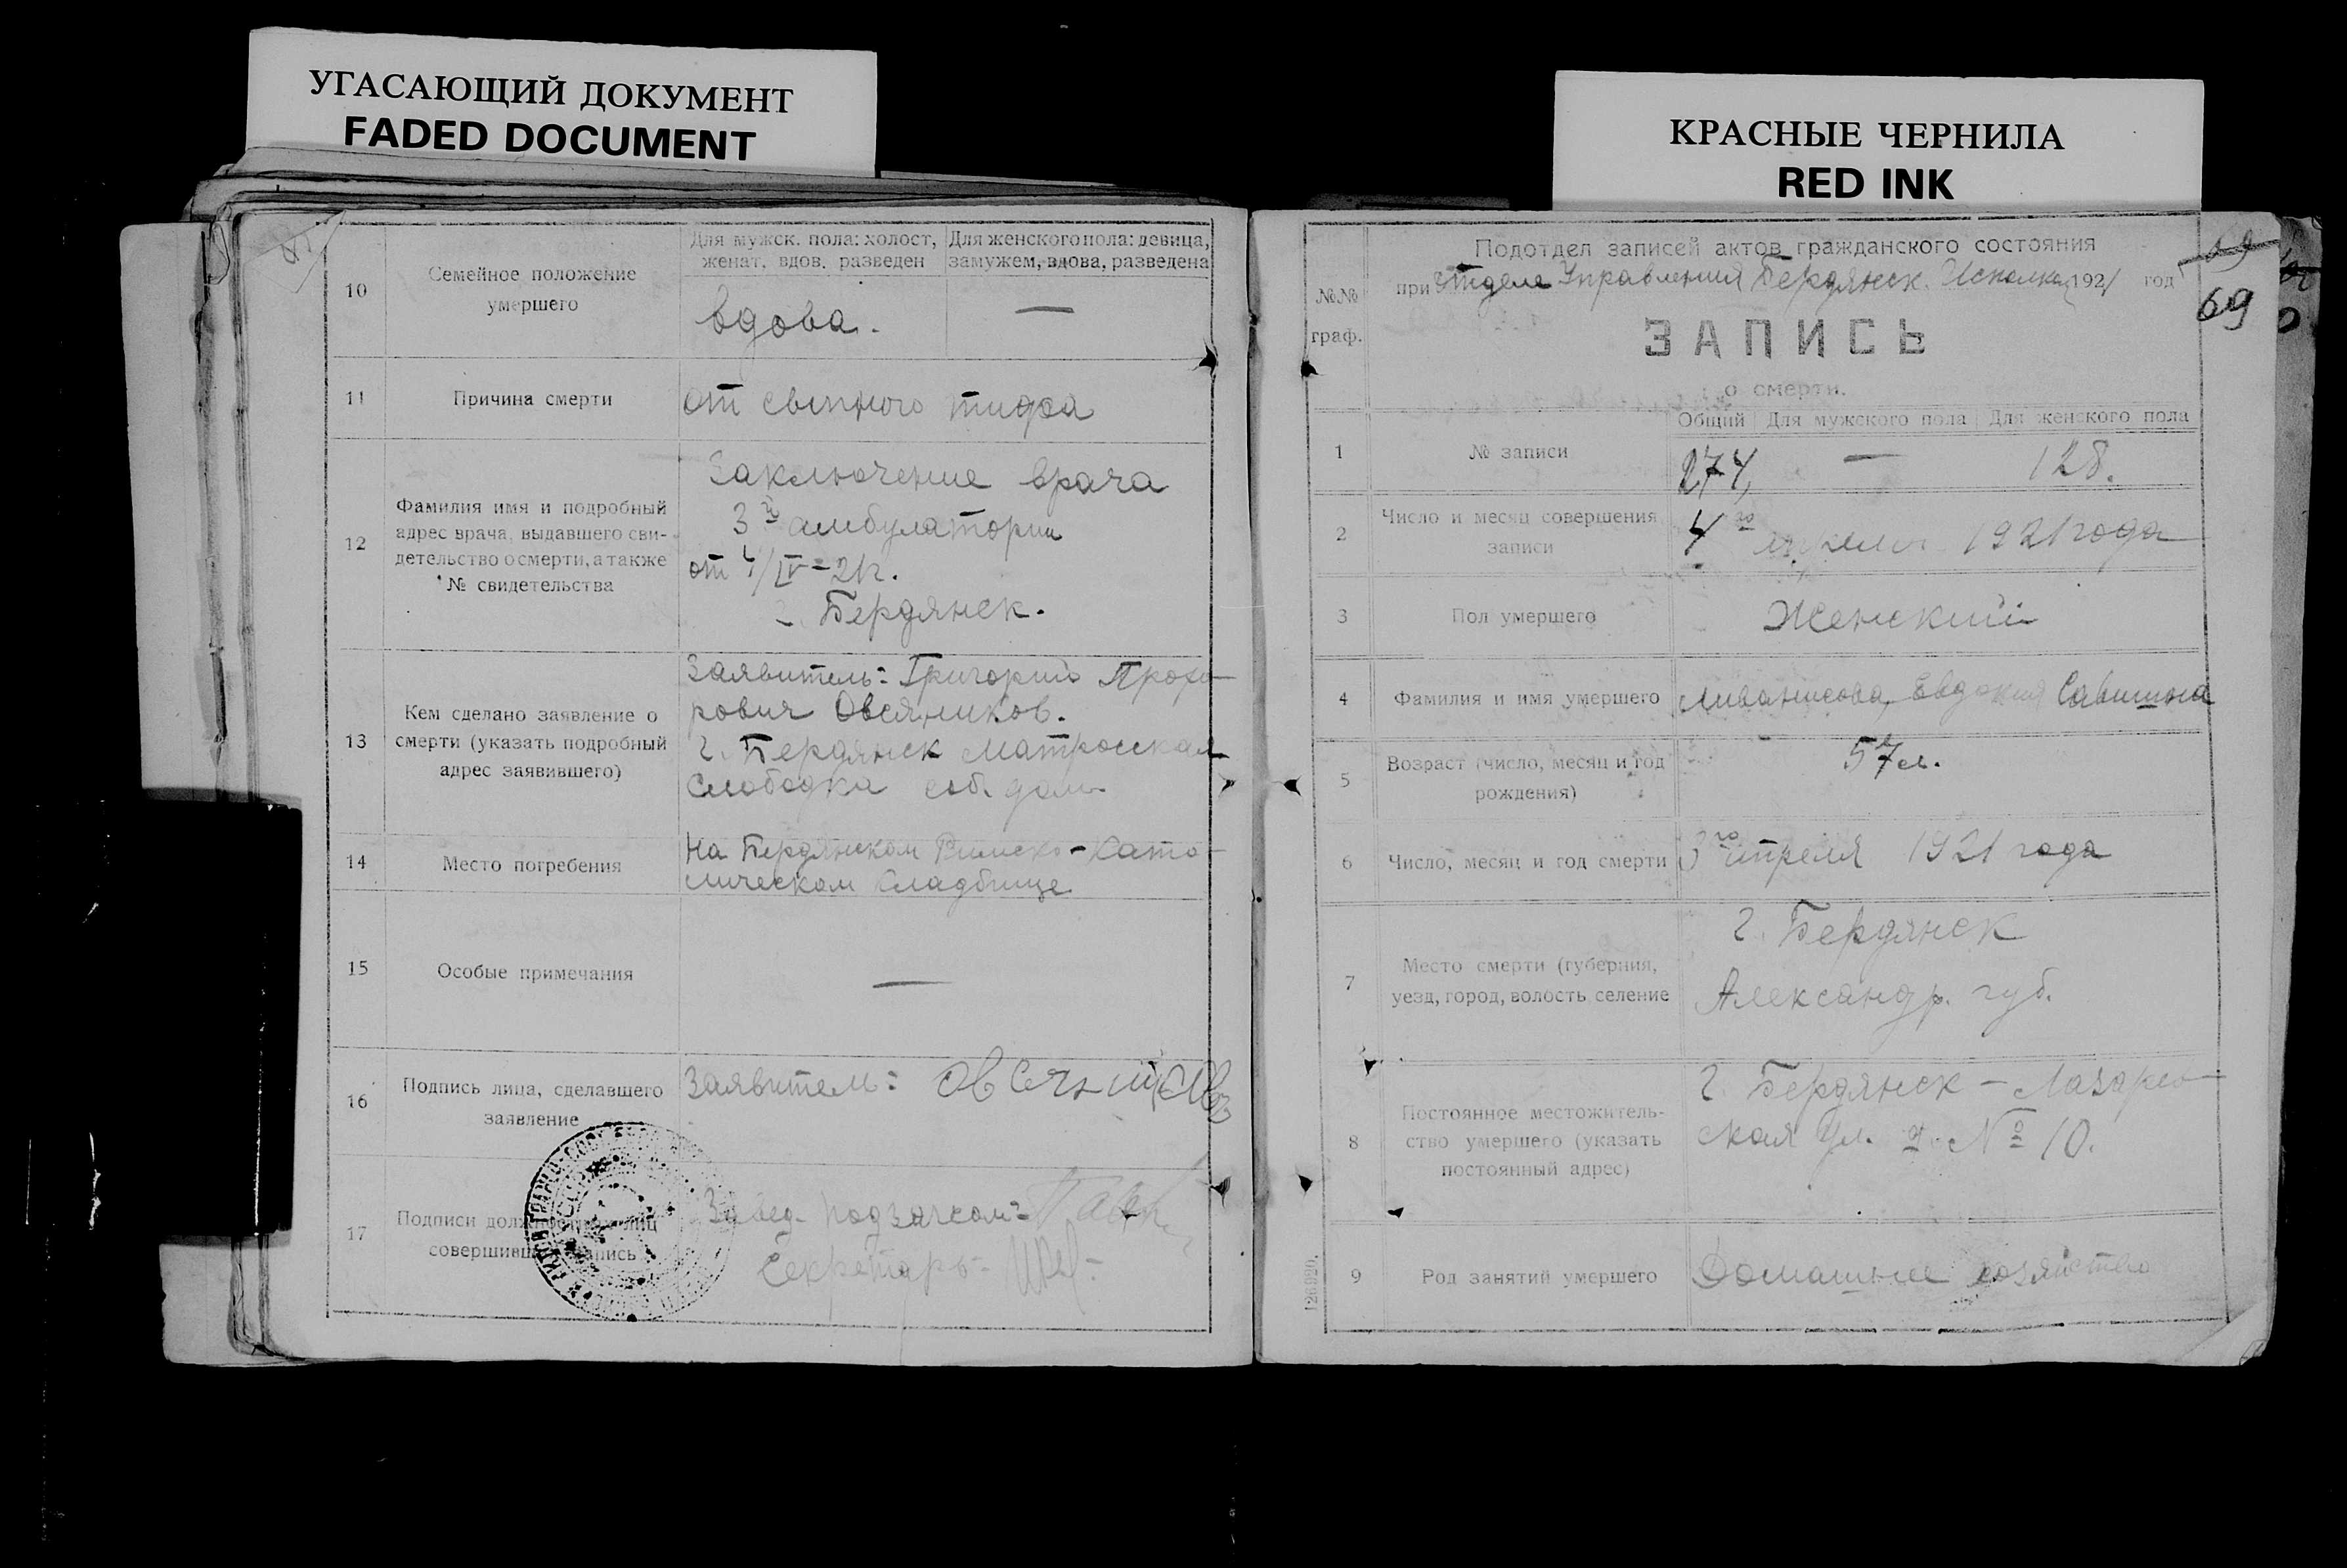 УГАСАЮЩИЙ ДОКУМЕНТ
FADED DOCUMENT
КРАСНЫЕ ЧЕРНИЛА
RED INK
10
Семейное положение
умершего
Для мужск. пола: холост,
женат, вдов, разведен
Для женского пола: девица,
замужем, вдова, разведена
вдова. —
11
Причина смерти
от сыпного тифа
12
Фамилия имя и подробный
адрес врача, выдавшего сви-
детельство о смерти, а также
№ свидетельства
Заключение врача
3й амбулатории
от 4/IV-21г.
г. Бердянск.
13
Кем сделано заявление о
смерти (указать подробный
адрес заявившего)
Заявитель: Григорий Прохо-
рович Овсяников.
г. Бердянск Матросская
Слободка соб. дом
14
Место погребения
На Бердянском Римско-Като-
лическом кладбище
15
Особые примечания
—
16
Подпись лица, сделавшего
заявление
Заявитель:
17
Подписи должностных лиц
совершивших запись
Завед. подзагсом:
Секретарь-
№№
граф.
Подотдел записей актов гражданского состояния
при Отделе Управления Бердянск. Исполкома 1921 год
69
69
ЗАПИСЬ
о смерти.
1
№ записи
Общий Для мужского пола Для женского пола
274, — 128.
2
Число и месяц совершения
записи
4го апреля 1921 года
3
Пол умершего
Женский
4
Фамилия и имя умершего
Евдокия Савишна
5
Возраст (число, месяц и год
рождения)
57 л.
6
Число, месяц и год смерти
3го апреля 1921 года
7
Место смерти (губерния,
уезд, город, волость селение
г. Бердянск
Александр. губ.
8
Постоянное местожитель-
ство умершего (указать
постоянный адрес)
г. Бердянск - Лазарев-
ская ул. д. № 10.
9
Род занятий умершего
Домашнее хозяйство
126 920.